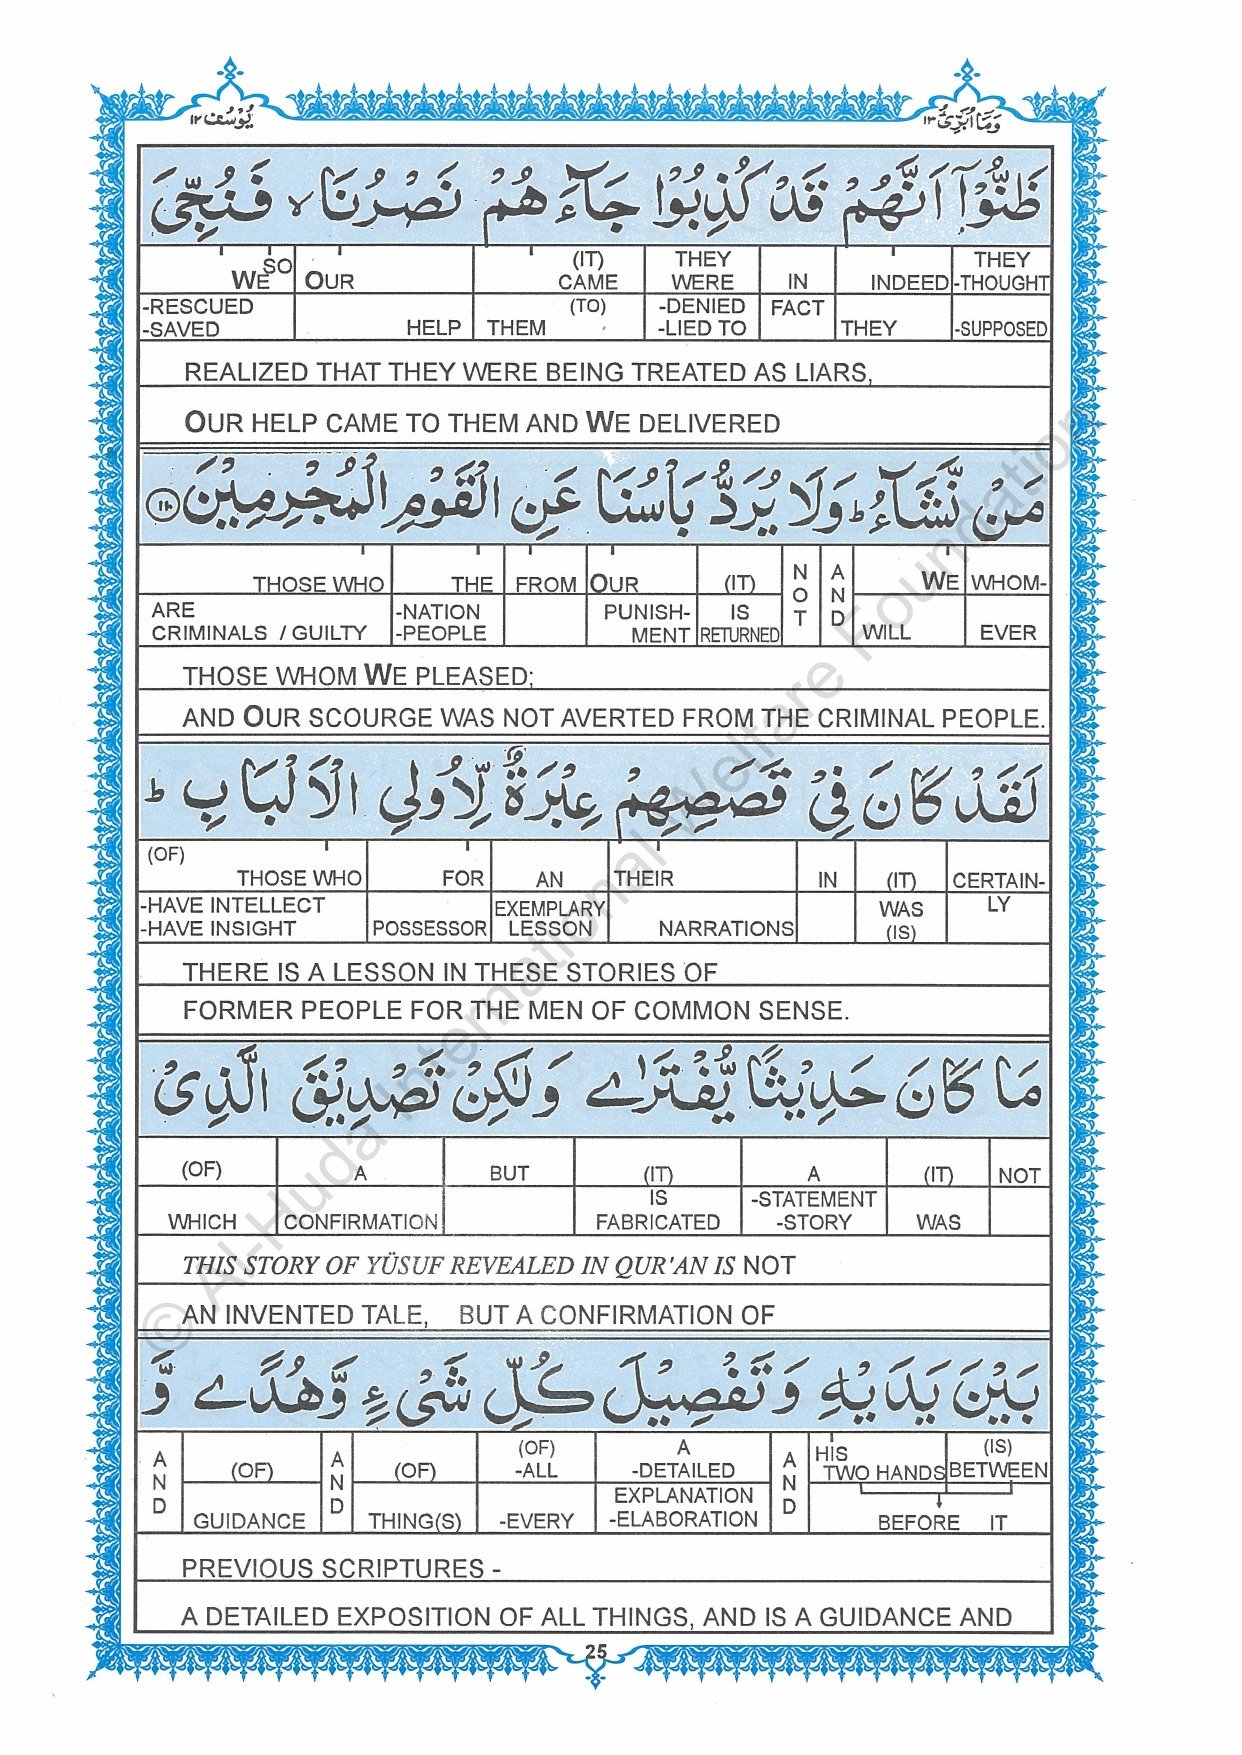 وَمَآ اُبَرِّئُ ١٣
يُوْسُف ١٢
ظَنُّوْٓا اَنَّهُمْ قَدْ كُذِبُوْا جَآءَ هُمْ نَصْرُنَا ۙ فَنُجِّیَ
THEY -THOUGHT -SUPPOSED
INDEED THEY
IN FACT
THEY WERE -DENIED -LIED TO
(IT) CAME (TO) THEM
OUR HELP
SO WE -RESCUED -SAVED
REALIZED THAT THEY WERE BEING TREATED AS LIARS,
OUR HELP CAME TO THEM AND WE DELIVERED
مَنْ نَّشَآءُ ؕ وَلَا يُرَدُّ بَاْسُنَا عَنِ الْقَوْمِ الْمُجْرِمِيْنَ ١١٠
WHOM- EVER
WE WILL
AND
NOT
(IT) IS RETURNED
OUR PUNISH- MENT
FROM
THE -NATION -PEOPLE
THOSE WHO ARE CRIMINALS / GUILTY
THOSE WHOM WE PLEASED;
AND OUR SCOURGE WAS NOT AVERTED FROM THE CRIMINAL PEOPLE.
لَقَدْ كَانَ فِیْ قَصَصِهِمْ عِبْرَةٌ لِّاُولِی الْاَلْبَابِ ؕ
CERTAIN- LY
(IT) WAS (IS)
IN
THEIR NARRATIONS
AN EXEMPLARY LESSON
FOR POSSESSOR
(OF) THOSE WHO -HAVE INTELLECT -HAVE INSIGHT
THERE IS A LESSON IN THESE STORIES OF
FORMER PEOPLE FOR THE MEN OF COMMON SENSE.
مَا كَانَ حَدِيْثًا يُّفْتَرٰى وَلٰكِنْ تَصْدِيْقَ الَّذِیْ
NOT
(IT) WAS
A -STATEMENT -STORY
(IT) IS FABRICATED
BUT
A CONFIRMATION
(OF) WHICH
THIS STORY OF YŪSUF REVEALED IN QUR'AN IS NOT
AN INVENTED TALE, BUT A CONFIRMATION OF
بَيْنَ يَدَيْهِ وَتَفْصِيْلَ كُلِّ شَیْءٍ وَّهُدًى وَّ
(IS) BETWEEN
HIS TWO HANDS
BEFORE IT
AND
A -DETAILED EXPLANATION -ELABORATION
(OF) -ALL -EVERY
(OF) THING(S)
AND
(OF) GUIDANCE
AND
PREVIOUS SCRIPTURES -
A DETAILED EXPOSITION OF ALL THINGS, AND IS A GUIDANCE AND
25
© Al-Huda International Welfare Foundation